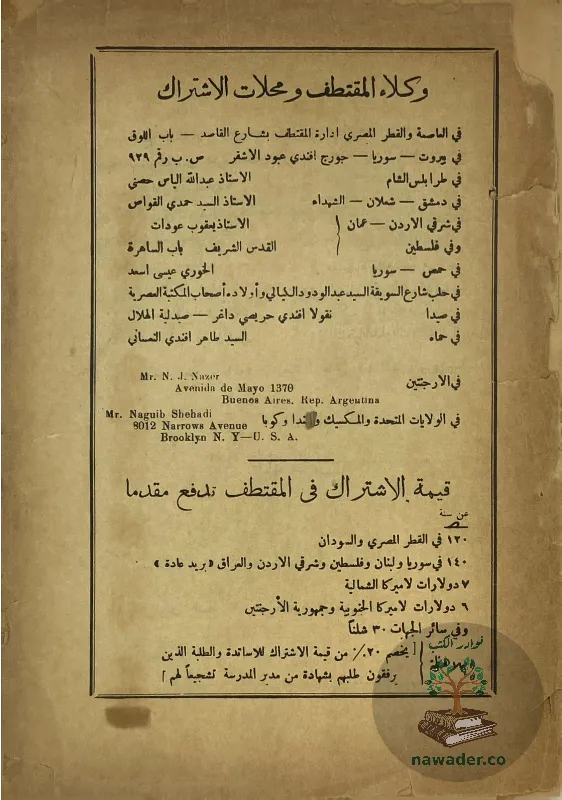 وكلاء المقتطف ومحلات الاشتراك
في العاصمة والقطر المصري ادارة المقتطف بشارع القاصد — باب اللوق
في بيروت — سوريا — جورج افندي عبود الاشقر ص. ب رقم ٩٢٩
في طرابلس الشام الاستاذ عبدالله الياس حصني
في دمشق — شعلان — الشهداء الاستاذ السيد حمدي القواص
في شرقي الاردن — عمان الاستاذ يعقوب عودات
وفي فلسطين القدس الشريف باب الساهرة
في حمص — سوريا الخوري عيسى اسعد
في حلب شارع السويقة السيد عبد الودود الكيالي وأولاده أصحاب المكتبة العصرية
في صيدا نقولا افندي حريصي داغر — صيدلية الهلال
في حماه السيد طاهر افندي النعساني
في الارجنتين Mr. N. J. Nazer
Avenida de Mayo 1370
Buenos Aires. Rep. Argentina
في الولايات المتحدة والمكسيك وكندا وكوبا Mr. Naguib Shehadi
8012 Narrows Avenue
Brooklyn N. Y—U. S. A.
قيمة الاشتراك في المقتطف تدفع مقدما
عن سنة
١٢٠ في القطر المصري والسودان
١٤٠ في سوريا ولبنان وفلسطين وشرقي الاردن والعراق «بريد عادة»
٧ دولارات لاميركا الشمالية
٦ دولارات لاميركا الجنوبية وجمهورية الأرجنتين
وفي سائر الجهات ٣٠ شلناً
[ يخصم ٢٠٪ من قيمة الاشتراك للاساتدة والطلبة الذين
يرفقون طلبهم بشهادة من مدير المدرسة تشجيعاً لهم ]
نوادر الكتب
nawader.co